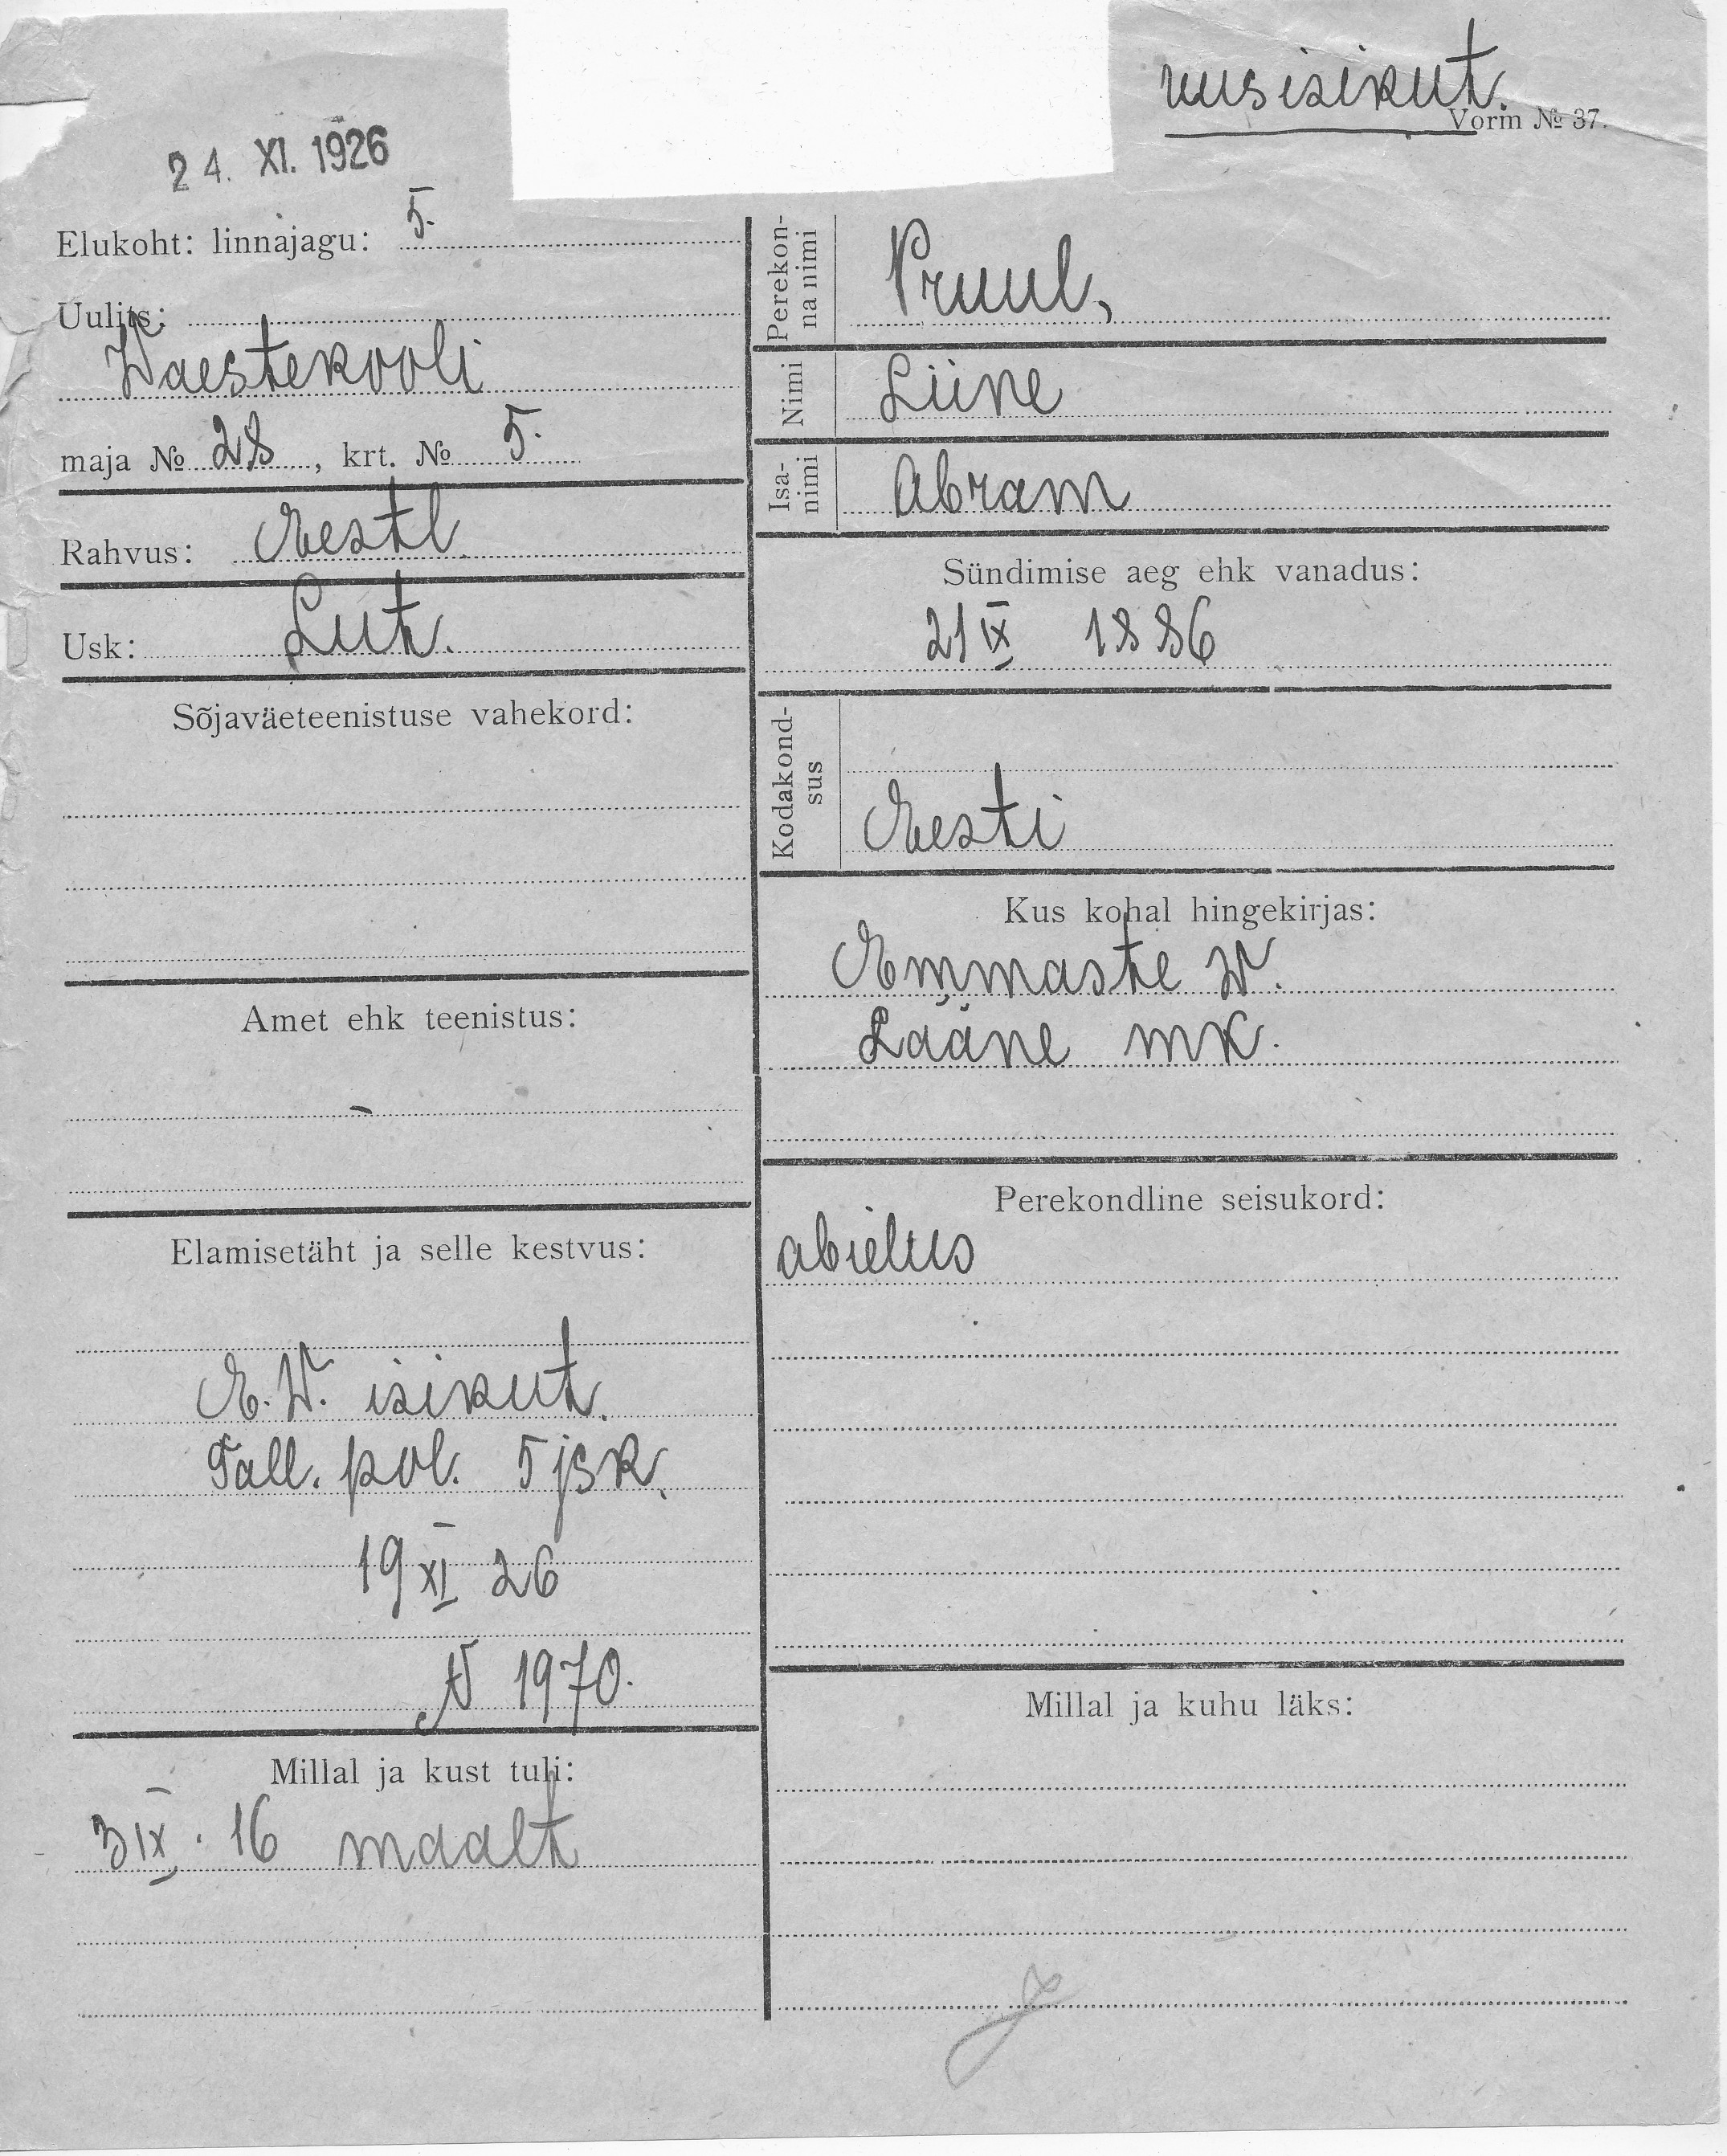 uus isikut.
Vorm № 37.
24. XI. 1926
Elukoht: linnajagu: 5.
Uulits:
Waestekooli
maja № 28, krt. № 5.
Rahvus: Eestl.
Usk: Lut.
Sõjaväeteenistuse vahekord:
Amet ehk teenistus:
–
Elamisetäht ja selle kestvus:
E. W. isikut.
Tall. pol. 5 jsk.
19 XI 26
N 1970.
Millal ja kust tuli:
3 IX. 16 maalt
Perekon-
na nimi
Pruul,
Nimi
Liine
Isa-
nimi
Abram
Sündimise aeg ehk vanadus:
21 IX 1886
Kodakond-
sus
Eesti
Kus kohal hingekirjas:
Emmaste W.
Lääne mk.
Perekondline seisukord:
abielus
Millal ja kuhu läks: